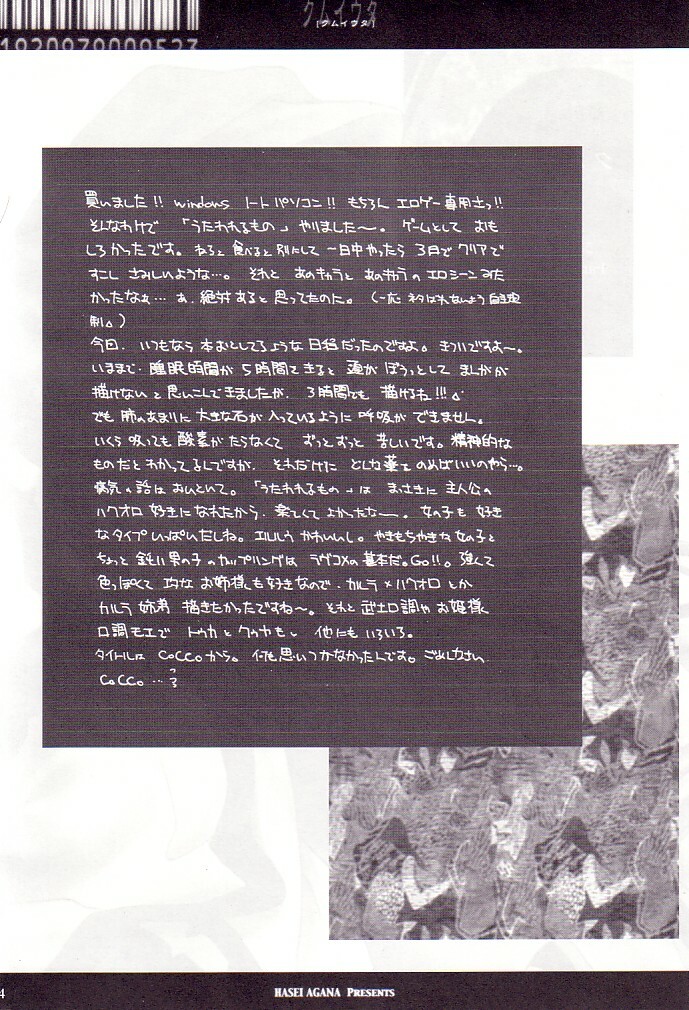 クムイウタ
[クムイウタ]
1920979009523
買いました!! windows ノートパソコン!! もちろん エロゲー専用さっ!!
そんなわけで 「うたわれるもの」 やりました〜。 ゲームとして おも
しろかったです。 ねると 食べると 別にして 一日中やったら 3日で クリアで
すこし さみしいような…。 それと あのキャラと あのキャラの エロシーンみた
かったなぁ… あ、絶対あると思ってたのに。 (一応 ネタばれないよう 自主規
制)
今回、いつもなら 本おとしてるような 日程だったのですよ。 きついですよ〜。
いままで、睡眠時間が 5時間できると 頭が ぼうっとして まんがが
描けない と 思いこんできましたが、 3時間でも 描けるね!!!
でも 肺のあたりに 大きな石が 入っているように 呼吸が できません。
いくら 吸っても 酸素が たらなくて ずっとずっと 苦しいです。 精神的な
ものだと わかってるんですが、 それだけに どんな薬を のめばいいのやら…。
病気の話は おいといて。 「うたわれるもの」は まっさきに 主人公の
ハクオロ 好きになれたから、 楽しくて よかったなー。 女の子も 好き
なタイプ いっぱいだしね。 エルルゥ かわいいし。 やきもちやきな 女の子と
ちょっと 鈍い 男の子 のカップリングは ラヴコメの 基本だ。Go!!。 強くて
色っぽくて 巧な お姉様も 好きなので、 カルラ×ハクオロ とか
カルラ 姉様 描きたかったですね〜。 それと 武士口調や お姫様
口調モエで トウカ と クゥヤも。 他にも いろいろ。
タイトルは COCCO から。 何も思いつかなかったんです。 ごめんなさい
COCCO …
4
HASEI AGANA PRESENTS